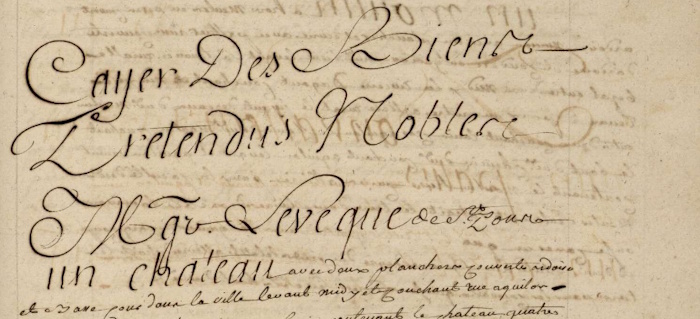 Cayer Des Biens
Pretendus Nobles
Mgr. Leveque de St. Pons
un chateau avec deux planchers couverts
et basse cour dans la ville levant midy et couchant rue aquilon
contenant le chateau quatre